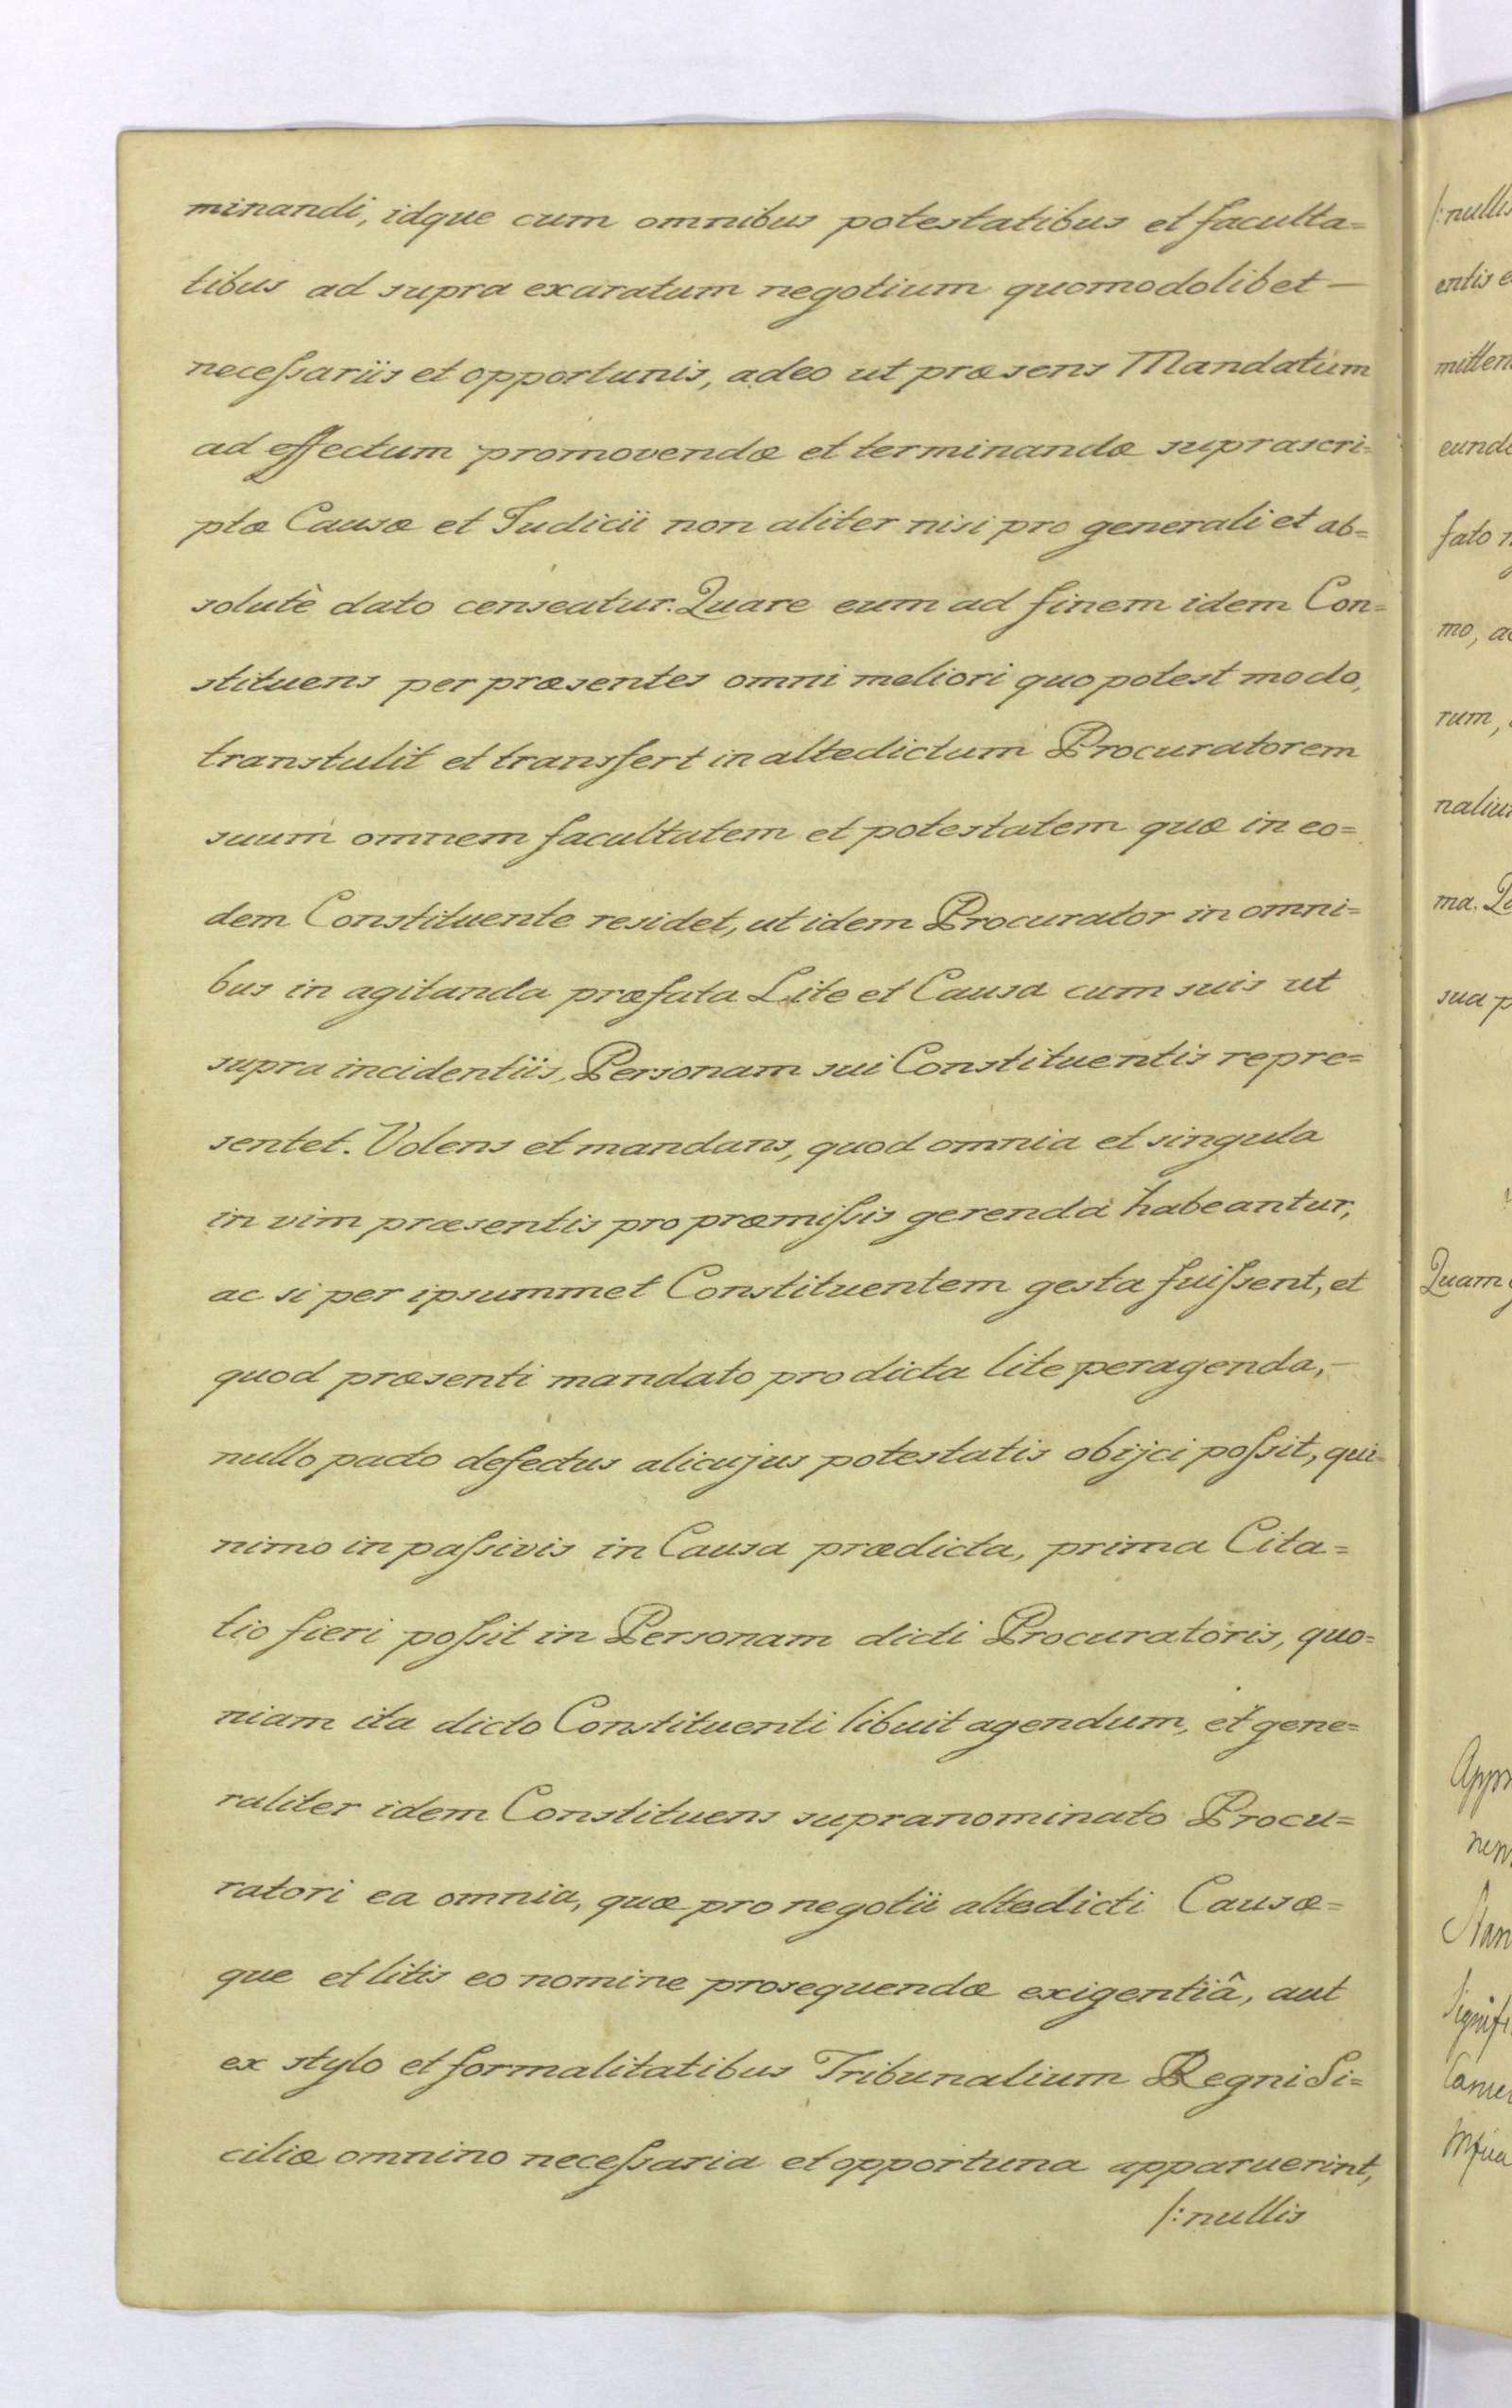 minandi, idque cum omnibus potestatibus et faculta=
tibus ad supra exaratum negotium quomodolibet —
necessariis et opportunis, adeo ut præsens Mandatum
ad effectum promovendæ et terminandæ suprascri=
ptæ Causæ et Judicii non aliter nisi pro generali et ab=
solutè dato censeatur. Quare eum ad finem idem Con=
stituens per præsentes omni meliori quo potest modo,
transtulit et transfert in altedictum Procuratorem
suum omnem facultatem et potestatem quæ in eo=
dem Constituente residet, ut idem Procurator in omni=
bus in agitanda præfata Lite et Causa cum suis ut
supra incidentiis, Personam sui Constituentis repre=
sentet. Volens et mandans, quod omnia et singula
in vim præsentis pro præmissis gerenda habeantur,
ac si per ipsummet Constituentem gesta fuissent, et
quod præsenti mandato pro dicta lite peragenda, —
nullo pacto defectus alicujus potestatis obijci possit, qui=
nimo in passivis in Causa prædicta, prima Cita=
tio fieri possit in Personam dicti Procuratoris, quo=
niam ita dicto Constituenti libuit agendum, et gene=
raliter idem Constituens supranominato Procu=
ratori ea omnia, quæ pro negotii altedicti Causæ=
que et litis eo nomine prosequendæ exigentiâ, aut
ex stylo et formalitatibus Tribunalium Regni Si=
ciliæ omnino necessaria et opportuna apparuerint,
/:nullis
/:nullis
entis
eund
fato
mo,
rum,
ma.
sua
Quam